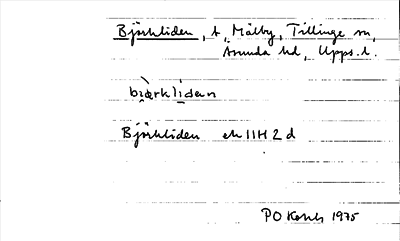 Björkliden, t. Mälby, Tillinge sn,
Åsunda hd, Upps. l.
bi̯æ̀rkli̱dan
Björkliden ek 11H 2 d
PO 1975